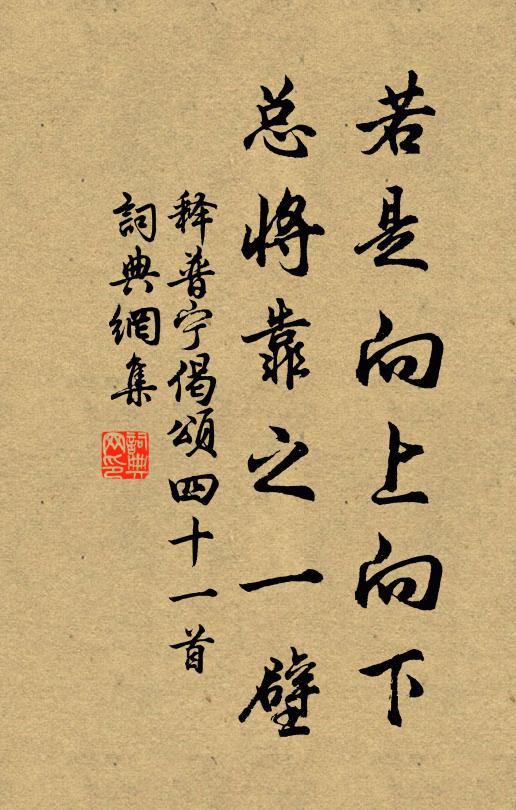 若是向上向下
总将靠之一壁
释普宁偈颂四十一首
詞典網集
詞典网印